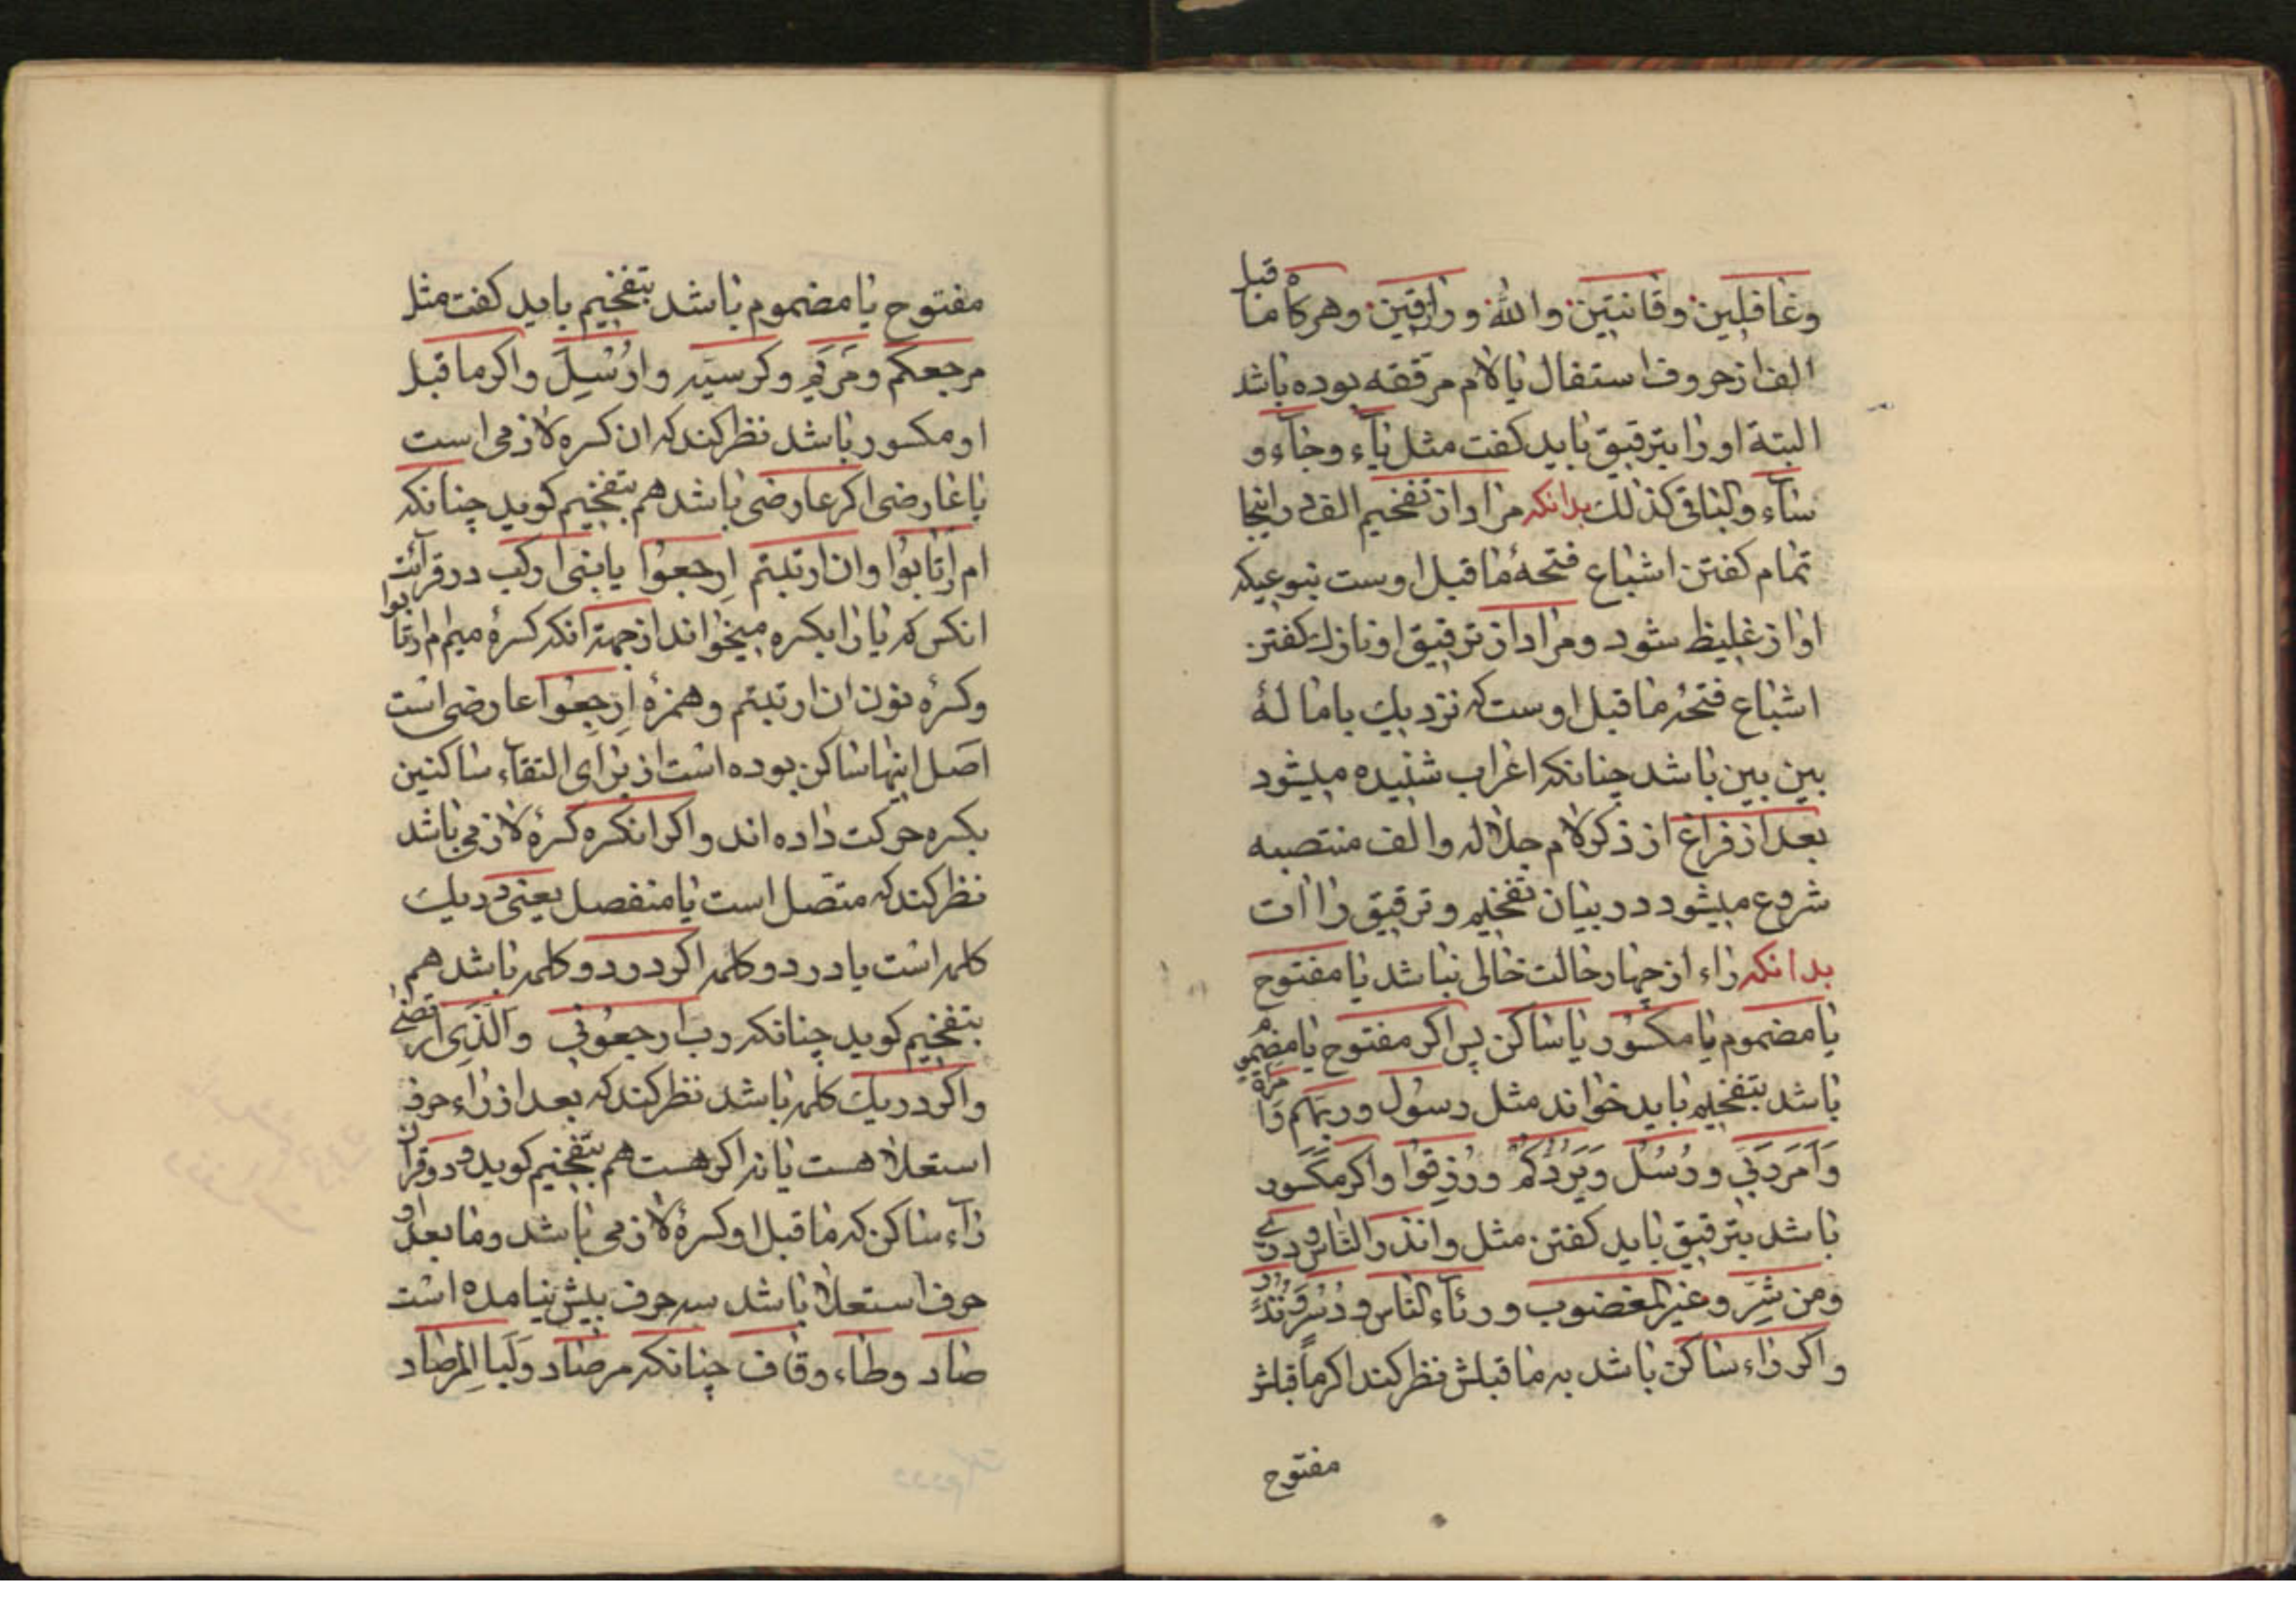 وغافلین وقانتین والله ورازقین وهرکاه ما قبل
الف از حروف استفال یا لام مرققه بوده باشد
البتة او را بترقیق باید کفت مثل یآء وجآء و
سآء والباقی کذلک بدانکه مراد از تفخیم الف در اینجا
تمام کفتن اشباع فتحهٔ ما قبل اوست بنوعیکه
اواز غلیظ شود ومراد از ترقیق او نازک کفتن
اشباع فتحهٔ ما قبل اوست که نزدیک باما لهٔ
بین بین باشد چنانکه اعراب شنیده میشود
بعد از فراغ از ذکر لام جلاله والف منتصبه
شروع میشود در بیان تفخیم وترقیق راآت
بدانکه راء از چهار حالت خالی نباشد یا مفتوح
یا مضموم یا مکسور یا ساکن پس اکر مفتوح یا مضموم
باشد بتفخیم باید خواند مثل رسول وربهم
وَاَمَرَ رَبّی ورُسُل وَیَرُدُّکُمْ ورُزِقُوا واکر مکسور
باشد بترقیق باید کفتن مثل وانذر الناس
ومن شرِّ وغیرِ المغضوب ورئآء الناس
واکر راء ساکن باشد به ما قبلش نظر کند اکر ما قبلش
مفتوح
مفتوح یا مضموم باشد بتفخیم باید کفت مثل
مرجعکم ومَریَم وکرسیّه واُرْسِلَ واکر ما قبل
او مکسور باشد نظر کند که ان کسره لازمی است
یا عارضی اکر عارضی باشد هم بتفخیم کوید چنانکه
ام ارتابوا وان ارتبتم اِرجعوا یا بنی ارکب در قرائت
انکس که یا را بکسره میخواند از جهة انکه کسرهٔ میم ام ارتابوا
وکسرهٔ نون ان ارتبتم وهمزهٔ اِرجِعوا عارضی است
اصل اینها ساکن بوده است از برای التقآء ساکنین
بکسره حرکت داده اند واکر انکسره کسرهٔ لازمی باشد
نظر کند که متّصل است یا منفصل یعنی در یک
کلمه است یا در دو کلمه اکر در دو کلمه باشد هم
بتفخیم کوید چنانکه رب ارجعونی والّذی ارتضی
واکر در یک کلمه باشد نظر کند که بعد از رآء حرف
استعلا هست یا نه اکر هست هم بتفخیم کوید ودر قرآن
رآء ساکن که ما قبل او کسرهٔ لازمی باشد وما بعد او
حرف استعلا باشد سه حرف بیش نیامده است
صاد وطاء وقاف چنانکه مرصاد ولَبِالمِرصاد